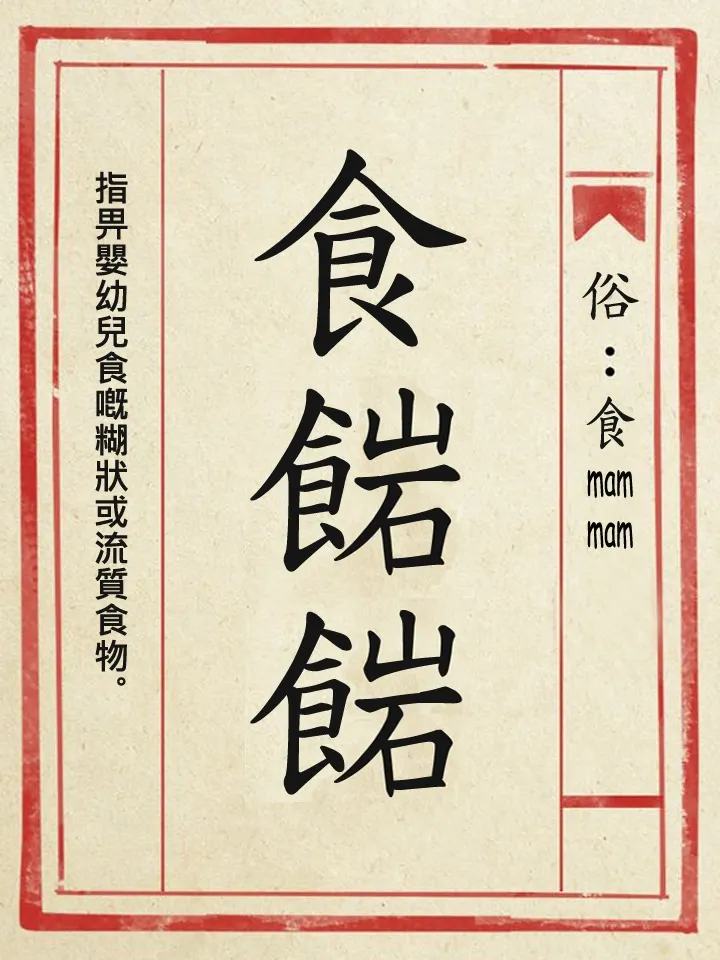 俗：食mam mam
食𩜠𩜠
指畀嬰幼兒食嘅糊狀或流質食物。